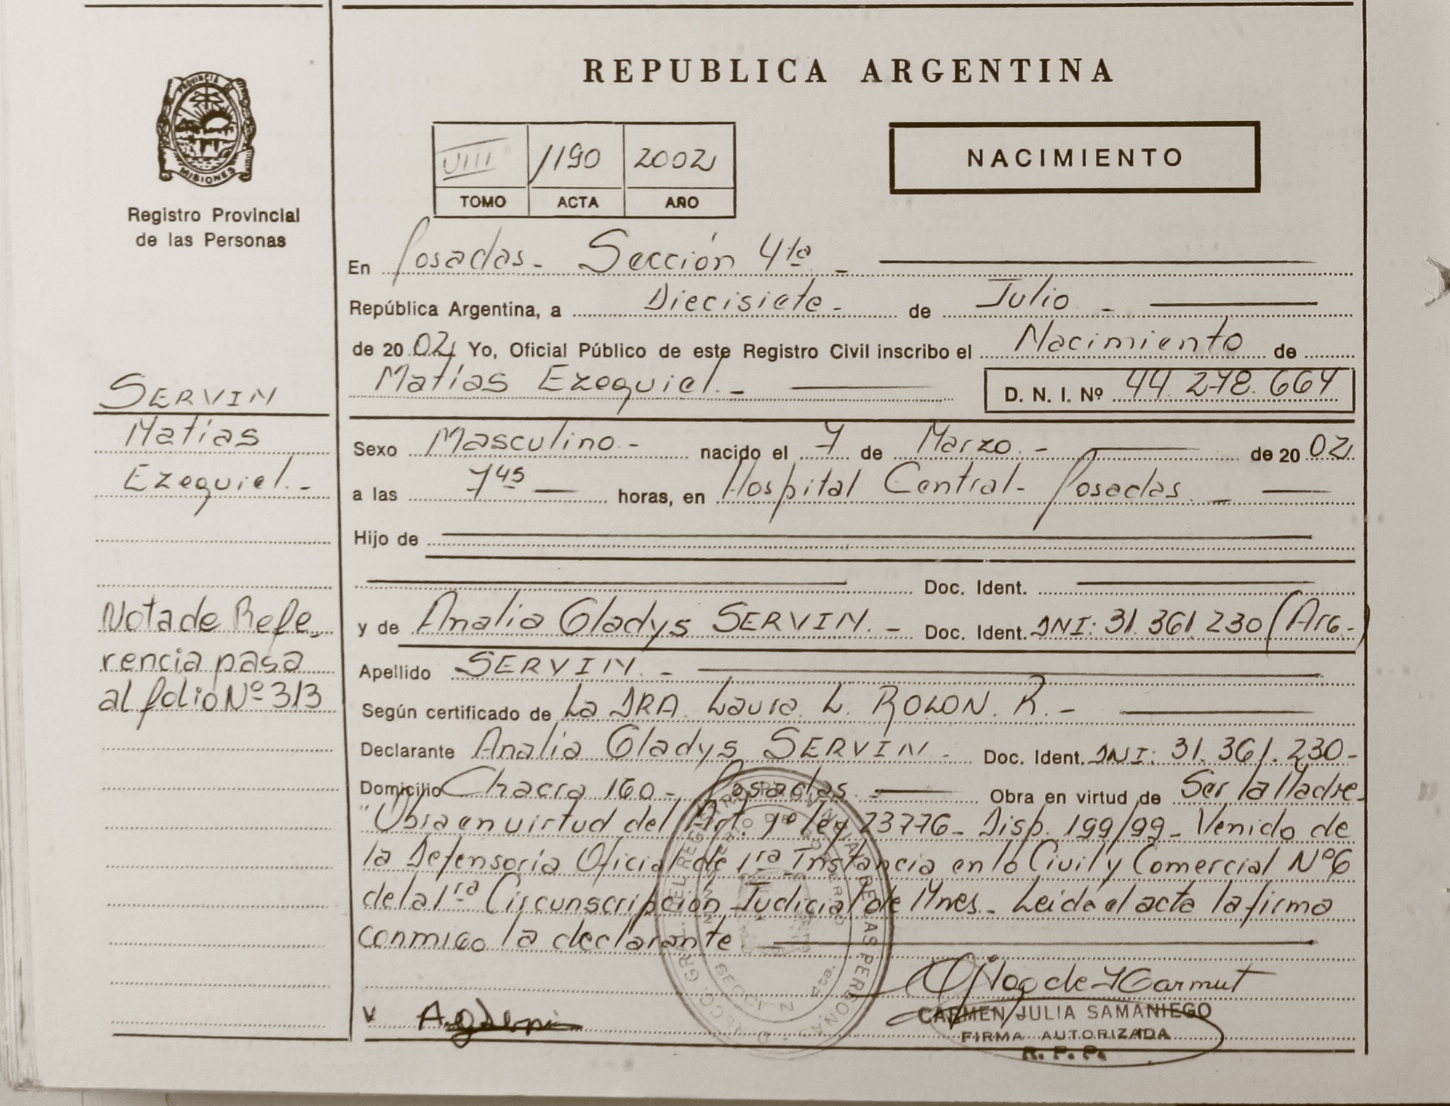 REPUBLICA ARGENTINA
PROVINCIA DE
MISIONES
Registro Provincial
de las Personas
VIII 1190 2002
TOMO ACTA AÑO
NACIMIENTO
En Posadas - Sección 4ta -
República Argentina, a Diecisiete - de Julio -
de 20 02 Yo, Oficial Público de este Registro Civil inscribo el Nacimiento de
Matías Ezequiel - D. N. I. Nº 44.278.664
Sexo Masculino - nacido el 7 de Marzo - de 20 02
a las 7 45 horas, en Hospital Central - Posadas -
Hijo de
Doc. Ident.
y de Analia Gladys SERVIN - Doc. Ident. DNI: 31.361.230 (Arg -)
Apellido SERVIN -
Según certificado de La DRA. Laura L. ROLON. R. -
Declarante Analia Gladys SERVIN - Doc. Ident. DNI: 31.361.230 -
Domicilio Chacra 160 - Posadas - Obra en virtud de Ser la Madre -
"Obra en virtud del Art. 1º ley 23776 - Disp. 199/99 - Venido de
la Defensoría Oficial de 1ra Instancia en lo Civil y Comercial Nº 6
de la 1ra Circunscripción Judicial de Mnes - Leida el acta la firma
conmigo la declarante
SERVIN
Matías
Ezequiel -
Nota de Refe
rencia pasa
al folio Nº 313
CARMEN JULIA SAMANIEGO
FIRMA AUTORIZADA
R. P. P.